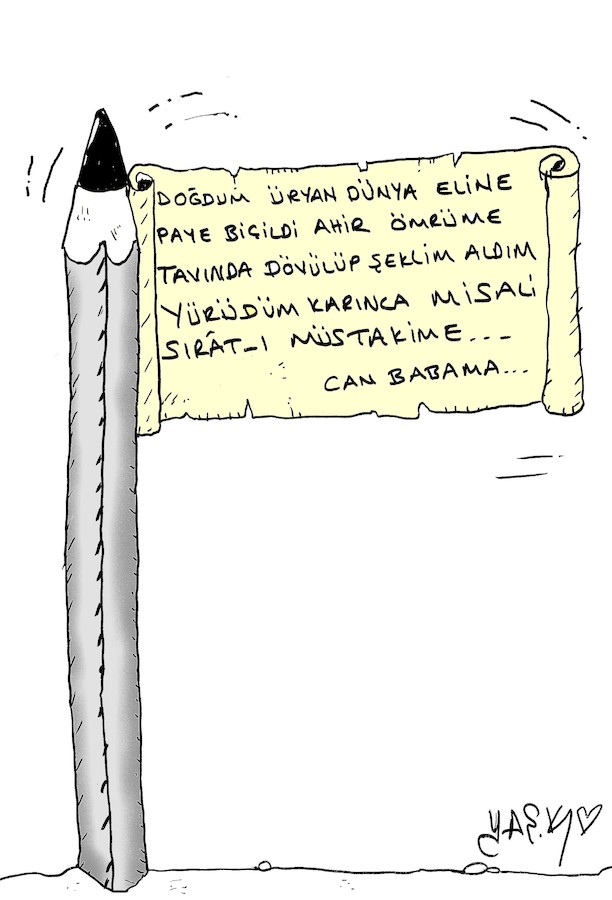 DOĞDUM ÜRYAN DÜNYA ELİNE
PAYE BİÇİLDİ AHİR ÖMRÜME
TAVINDA DÖVÜLÜP ŞEKLİM ALDIM
YÜRÜDÜM KARINCA MİSALİ
SIRÂT-I MÜSTAKİME...
CAN BABAMA...